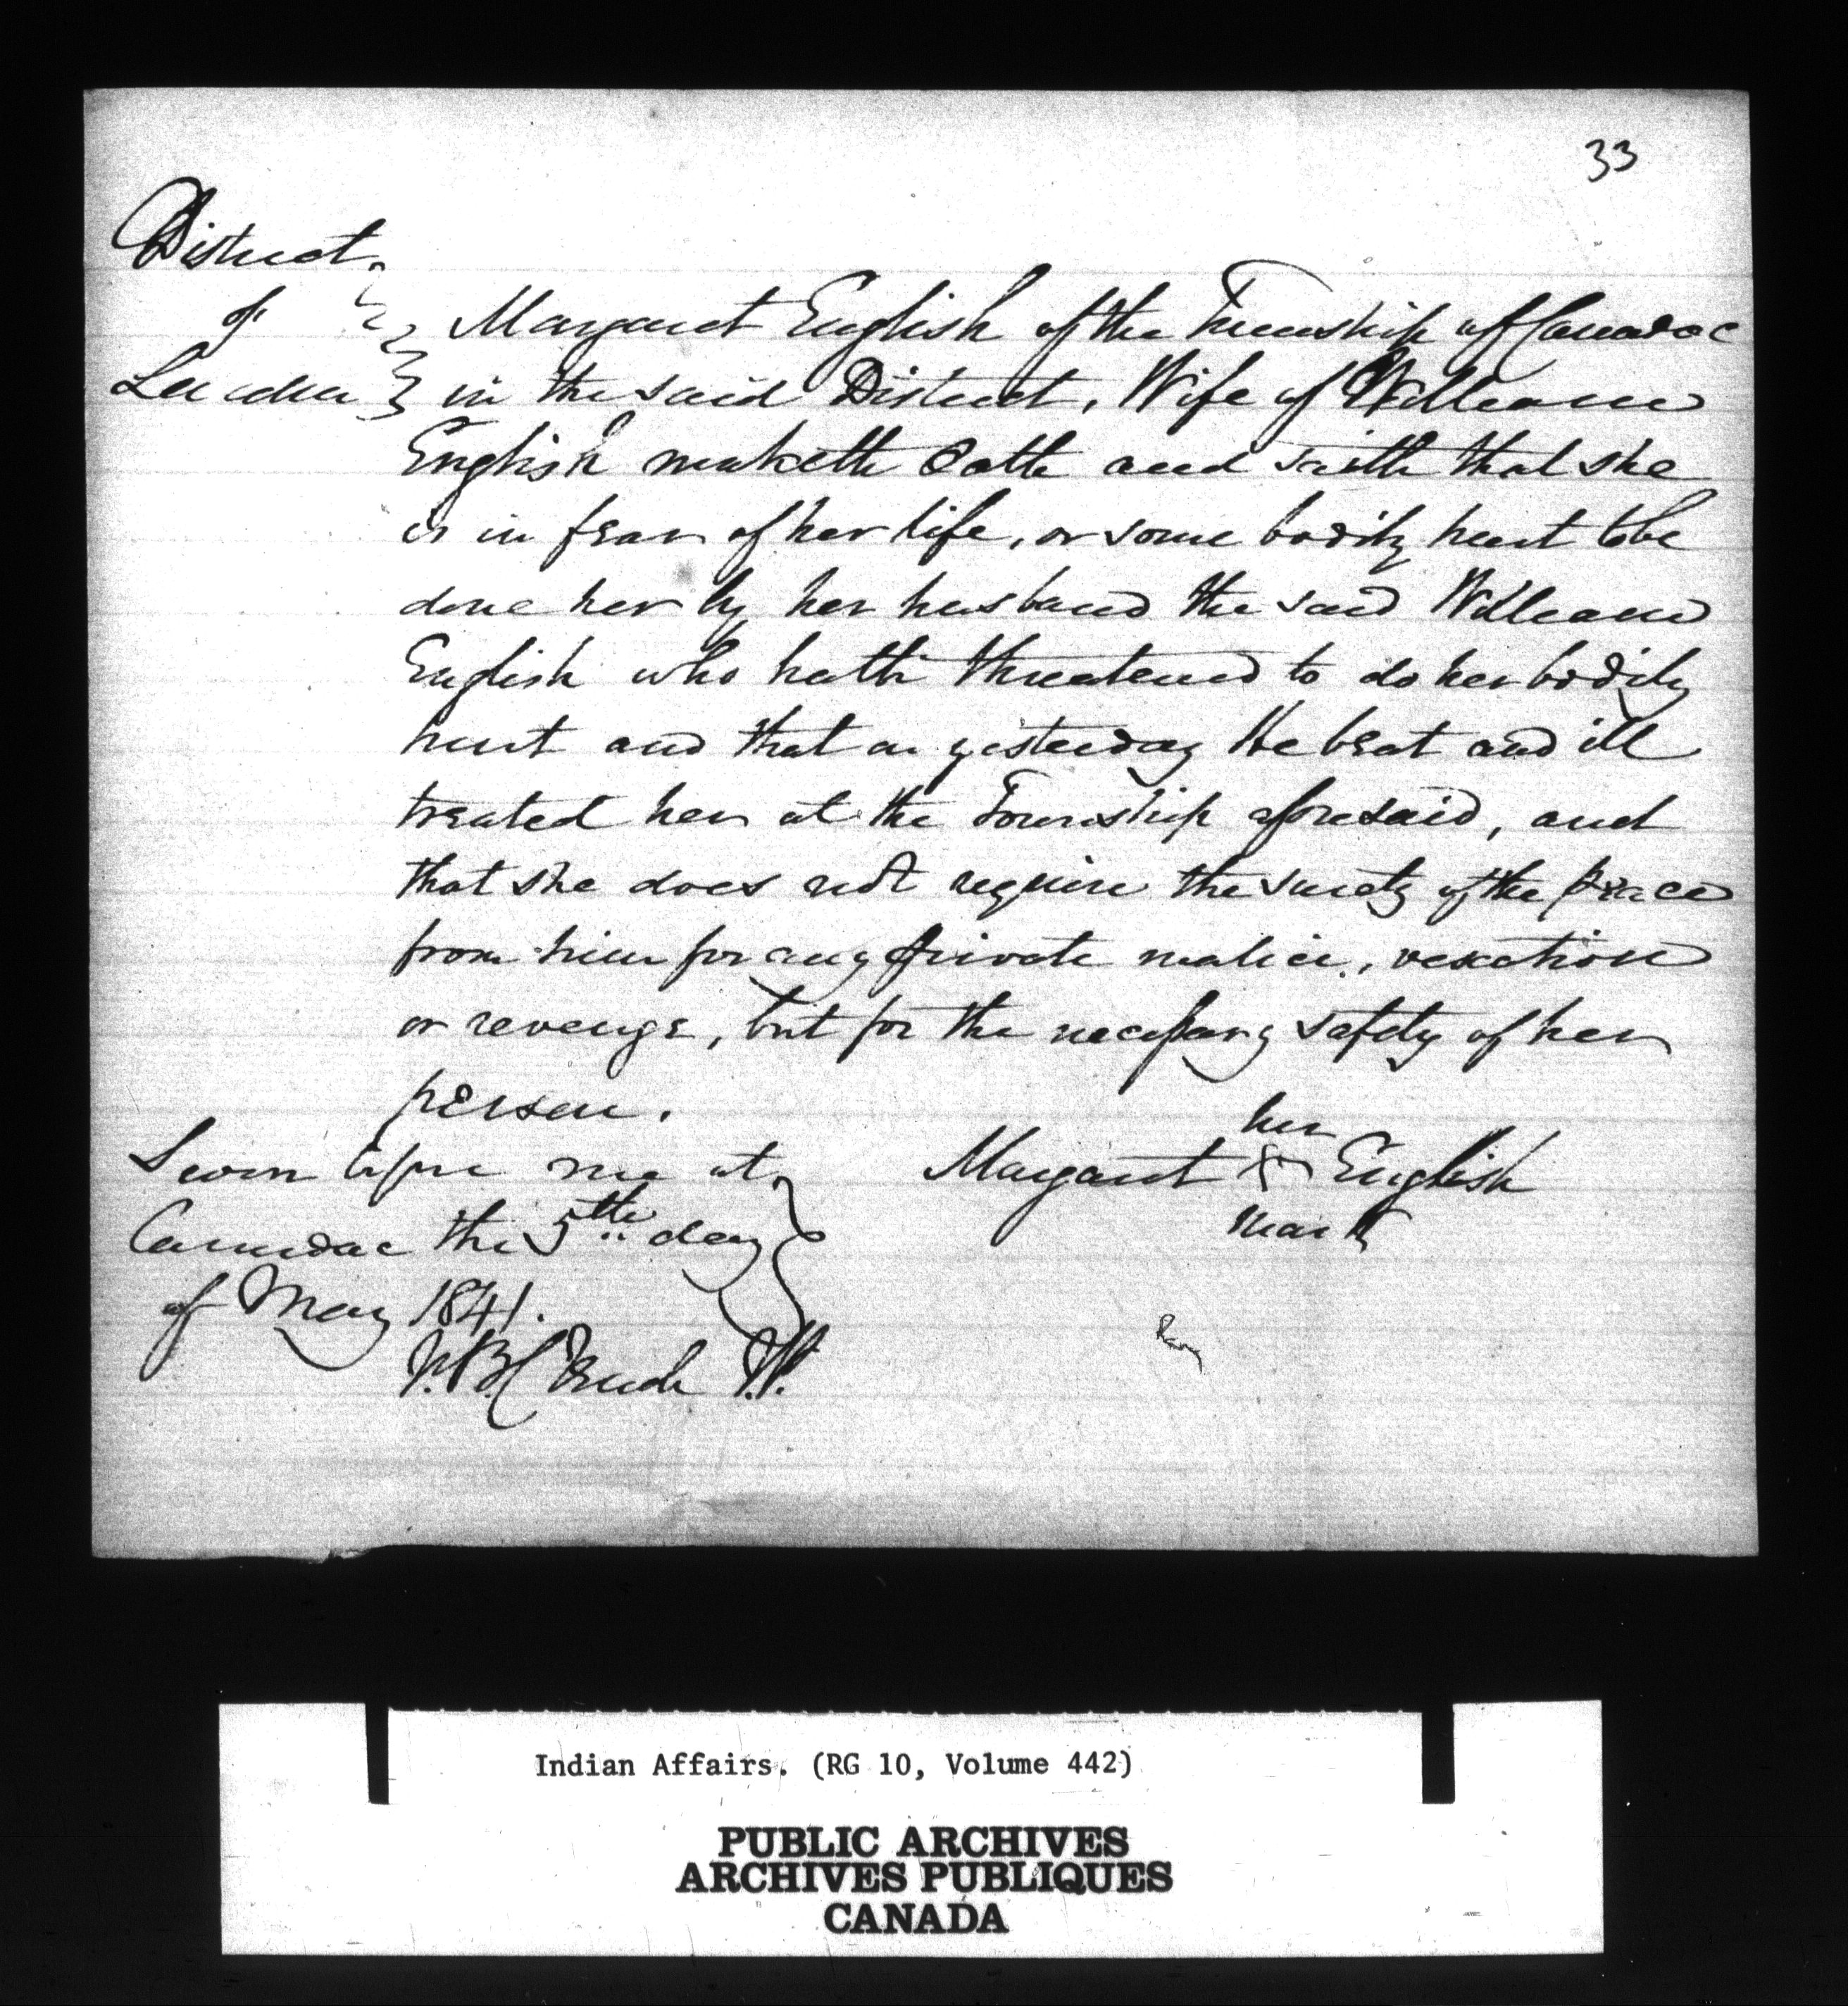 33
District
of } Margaret English of the Township of Caradoc
London } in the said District, Wife of William
English maketh Oath and saith that she
is in fear of her life, or some bodily hurt to be
done her by her husband the said William
English who hath threatened to do her bodily
hurt and that on yesterday He beat and ill
treated her at the Township aforesaid, and
that she does not require the surety of the peace
from him for any private malice, vexation
or revenge, but for the necessary safety of her
person.
Sworn before me at
Caradoc the 5th day
of May 1841.
J.P.
her
Margaret X English
mark
Indian Affairs. (RG 10, Volume 442)
PUBLIC ARCHIVES
ARCHIVES PUBLIQUES
CANADA